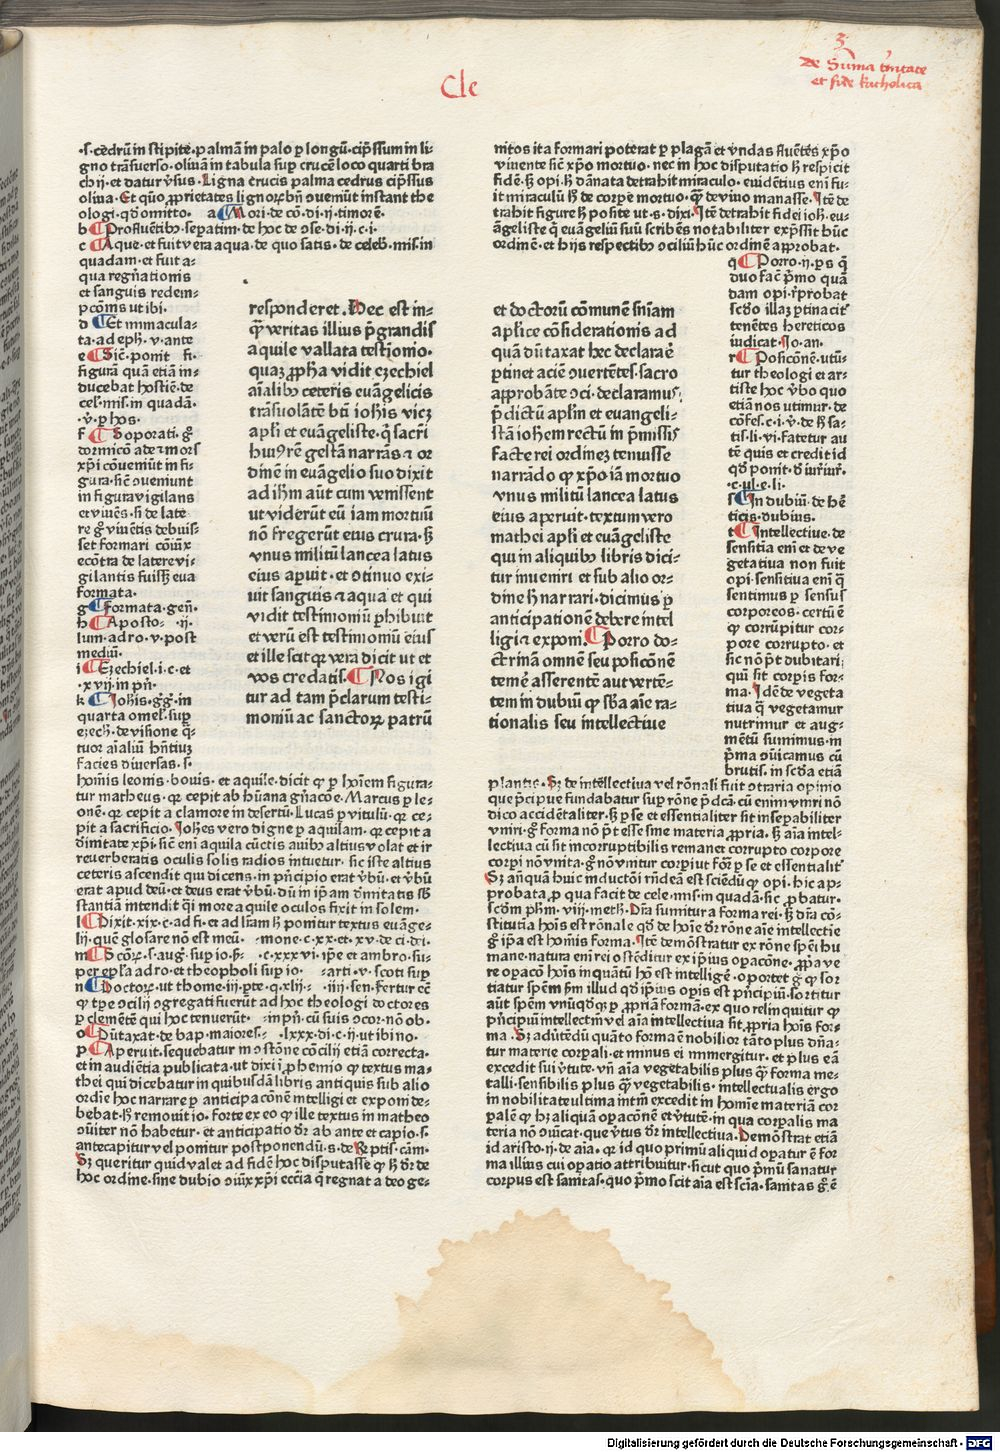 3
De Suma trinitate
et fide katholica
Cle
.s. cedrū in stipite. palmam̄ in palo ꝑ longū. cip̄ssum in li
gno trāsuerso. oliuā in tabula suꝑ crucē loco quarti bra
chij. et datur ꝟsus. Ligna crucis palma cedrus cip̄ssus
oliua. Et quō ꝓprietates lignoꝝ bn̄ ꝯueniūt instant the
ologi. qd̄ omitto. a Mori. de cō. di. ij. timorē.
b Profluentibꝰ. sepatim. de hoc de ꝯse. di. ij. c. i.
c Aque. et fuit vera aqua. de quo satis. de celeb̄. mis. in
quadam. et fuit a-
qua regn̄ationis
et sanguis redem-
pcōnis ut ibi.
d Et immacula-
ta. ad eph̄. v. ante
e Sic̄. ponit fi.
figurā quā etiā in-
ducebat hostiēn̄. de
cel̄. mis. in quadā.
.v. ꝑ hos.
f Soporati. g̊
dormicō ade ⁊ mors
xp̄i cōueniūt in fi-
gura. sic̄ ꝯueniunt
in figura vigilans
et viuēs. si de late
re g̊ viuētis debuis-
set formari cōiūx
ecōtra de latere vi-
gilantis fuisset eua
formata.
g Formata. gen̄.
h Aposto- .ij.
lum. ad ro. v. post
mediū.
i Ezechiel. i. c. et
.xvij. in pn̄.
k Joh̄is. g̊g̊. in
quarta omel̄. suꝑ
ezech. de visione q̄-
tuor aīaliū hn̄tiuꝫ
facies diuersas. s.
hoīnis leonis. bouis. et aquile. dicit ꝙ ꝑ hoīem figura-
tur matheus. qꝛ cepit ab hūana gn̄acōe. Marcus ꝑ le-
onē. qꝛ cepit a clamore in desertū. Lucas ꝑ vitulū. qꝛ ce-
pit a sacrificio. Joh̄es vero digne ꝑ aquilam. qꝛ cepit a
diuinitate xp̄i. sic̄ enī aquila cūctis auibꝰ altiꝰ volat et ir
reuerberatis oculis solis radios intuetur. sic iste altius
ceteris ascendit qui dicens. in pn̄cipio erat ꝟbū. et ꝟbū
erat apud deū. et deus erat ꝟbū. dū in ip̄am diuinitatis sb̄
stantiā intendit q̄i more aquile oculos fixit in solem.
l Dixit. xix. c. ad fi. et ad lr̄am hꝫ ponitur textus euāge-
lij. quē glosare nō est meū. -mone. c. xx. et. xv. de ci. dei.
m S cōꝝ. s. aug. suꝑ io. h̄- .c. xxxvi. ip̄e et ambro. su-
per epl̄a ad ro. et theopholi suꝑ io- -arti. v. scoti suꝑ
n Doctoꝝ. ut thome. iij. ꝑte. q. xlij- .iiij. sen. fertur em̄
ꝙ tꝑe ꝯcilij ꝯgregati fuerūt ad hoc theologi doctores
ꝑ clementē qui hoc tenuerūt. -in pn̄. cū suis ꝯcor. nō ob.
o Dūtaxat. de bap. maiores- .lxxx. di. c. ij. ut ibi no.
p Aperuit. sequebatur in ꝯstōne cōcilij etiā correcta.
et in audiētia publicata. ut dixi ī ꝓhemio ꝙ textus ma-
thei qui dicebatur in quibusdā libris antiquis sub alio
ordīe hoc narrare ꝑ anticipacōnē intelligi et exponi de-
bebat. hꝫ remouit io. forte ex eo ꝙ ille textus in matheo
ꝯūiter nō habetur. et anticipatio dꝛ ab ante et capio. s.
antecapitur vel ponitur postponendū. s. de Rptis. cām.
Sꝫ queritur quid valet ad fidē hoc disputasse ꝙ hꝫ dꝛ de
hoc ordine. sine dubio ꝯiūx xp̄i eccīa q̄ regnat a deo ge-
responderet. Hec est in-
q̄ veritas illius p̄grandis
aquile vallata testionio.
quaꝫ ꝓph̄a vidit ezechiel
aīalibꝰ ceteris euāgelicis
trāsuolātē btī ioh̄is vicꝫ
apl̄i et euāgeliste. q̄ sacrī
huiꝰrē gestā narrās ⁊ or
dinē in euāgelio suo dixit
ad ih̄m aūt cum venissent
ut viderūt eū iam mortuū
nō fregerūt eius crura. hꝫ
vnus militū lancea latus
eius aꝑuit. et ꝯtinuo exi-
uit sanguis ⁊ aqua et qui
vidit testimoniū ꝑhibuit
et verū est testimoniū eius
et ille scit qꝛ vera dicit ut et
vos credatis. Nos igi
tur ad tam p̄clarum testi-
moniū ac sanctoꝝ patrū
et doctorū cōmunē sniam
apl̄ice cōsiderationis ad
quā dūtaxat hec declararē
ꝑtinet aciē ꝯuertētes. sacro
approbāte ꝯci. declaramus
p̄dictū apl̄m et euangeli-
stā ioh̄em rectū in p̄missis
facte rei ordineꝫ tenuisse
narrādo ꝙ xp̄o iā mortuo
vnus militū lancea latus
eius aperuit. textum vero
mathei apl̄i et euāgeliste
qui in aliquibꝰ libris dici-
tur inueniri et sub alio or-
dine hꝫ narrari. dicimus ꝑ
anticipationē debere intel
ligi ⁊ exponi. Porro do-
ctrinā omnē seu posicōnē
temē asserentē aut vertē-
tem in dubiū ꝙ sb̄a aīe ra-
tionalis seu intellectiue
nitos ita formari poterat ꝑ plagā et ꝟndas fluētes xp̄o
viuente sic̄ xp̄o mortuo. nec in hoc disputatio hꝫ respicit
fidē. hꝫ opi. hꝫ dānata detrahit miraculo. euidētius eni fu-
it miraculū hꝫ de corꝑe mortuo. q̄ꝫ de viuo manasse. Itē de
trahit figure hꝫ posite ut. s. dixi. Itē detrahit fidei ioh̄. eu-
āgeliste q̄ euāgeliū suū scribēs notabiliter exp̄ssit hūc
ordinē. et hijs respectibꝰ ꝯciliū hūc ordinē approbat.
q Porro. ij. ꝑs q̄
duo fac̄. pīmo quā
dam opi. rēprobat
scd̄o illaꝫ ꝑtinacit̄
tenētes hereticos
iudicat. Jo. an.
r Posicōnē. utū-
tur theologi et ar-
tiste hoc ꝟbo quo
etiā nos utimur. de
cōfes. c. i. ꝟ. de hꝫ sa-
tis. li. vi. fatetur au
tē quis et credit id
qd̄ ponit. ꝺ iur̄iur̄.
.c. ul̄. e. li.
s In dubiū. de hē
ticis. dubius.
t Intellectiue. de
sensitia enī et de ve
getatiua non fuit
opi. sensitiua enī q̄
sentimus ꝑ sensus
corporeos. certū ē
ꝙ corrūpitur cor-
pore corrupto. et
sic nō pt̄ dubitari,
quī sit corpis for-
ma. Idē de vegeta
tiua q̄ vegetamur
nutrimur et aug-
mētū sumimus. in
pīma ꝯuicamus cū
brutis. in scd̄a etiā
plantis. Sꝫ de intellectiua vel rōnali fuit ꝯtraria opinio
que p̄cipue fundabatur suꝑ rōne p̄dcā. cū enim vniri nō
dico accidētaliter. hꝫ ꝑ se et essentialiter sit insepabiliter
vniri. g̊ forma nō pt̄ esse sine materia ꝓpria. hꝫ aīa intel-
lectiua cū sit incorruptibilis remanet corrupto corpore
corp̄i nō vnita. g̊ nō vnitur corp̄i ut for̄ ꝑ se et essentialit̄
Sꝫ anq̄uā huic inductōi rn̄deā est sciēdū ꝙ opi. hic ap-
probata. ꝓ qua facit de cele. mis. in quadā. sic ꝓbatur.
scd̄m ph̄m. viij. meth. Dr̄ia sumitur a forma rei. hꝫ dr̄ia cō-
stitutia hoīs est rōnale qd̄ de hoīe dꝛ rōne aīe intellectie
g̊ ip̄a est hoīnis forma. Itē demōstratur ex rōne spēi hu
mane. natura enī rei ostēditur ex ip̄ius oꝑacōne. ꝓpa ve
ro oꝑacō hoīs inquātū hō est intelligē. oportet g̊ ꝙ sor
tiatur spēm fm̄ illud qd̄ ip̄ius oꝑis est pn̄cipiū. sortitur
aūt spēm vnūqd̄qꝫ ꝑ ꝓpriā formā. ex quo relinquitur ꝙ
pn̄cipiū intellectiū vel aīa intellectiua sit ꝓpria hoīs for-
ma. Sꝫ aduertēdū quāto forma ē nobilior tāto plus dn̄a-
tur materie corꝑali. et minus ei immergitur. et plus eā
excedit sui ꝟtute. vn̄ aīa vegetabilis plus q̄ꝫ forma me-
talli. sensibilis plus q̄ꝫ vegetabilis. intellectualis ergo
in nobilitate ultima intm̄ excedit in homīe materiā cor
ꝑalē ꝙ hꝫ aliquā oꝑacōnē et ꝟtutē. in qua corꝑalis ma
teria nō ꝯīicat. que ꝟtus dꝛ intellectiua. Demōstrat etiā
id aristo. ij. de aīa. qꝛ id quo primū aliquid oꝑatur ē for
ma illius cui oꝑatio attribuitur. sicut quo pīmū sanatur
corpus est sanitas. quo pīmo scit aīa est scīa. sanitas g̊ ē
Digitalisierung gefördert durch die Deutsche Forschungsgemeinschaft · DFG